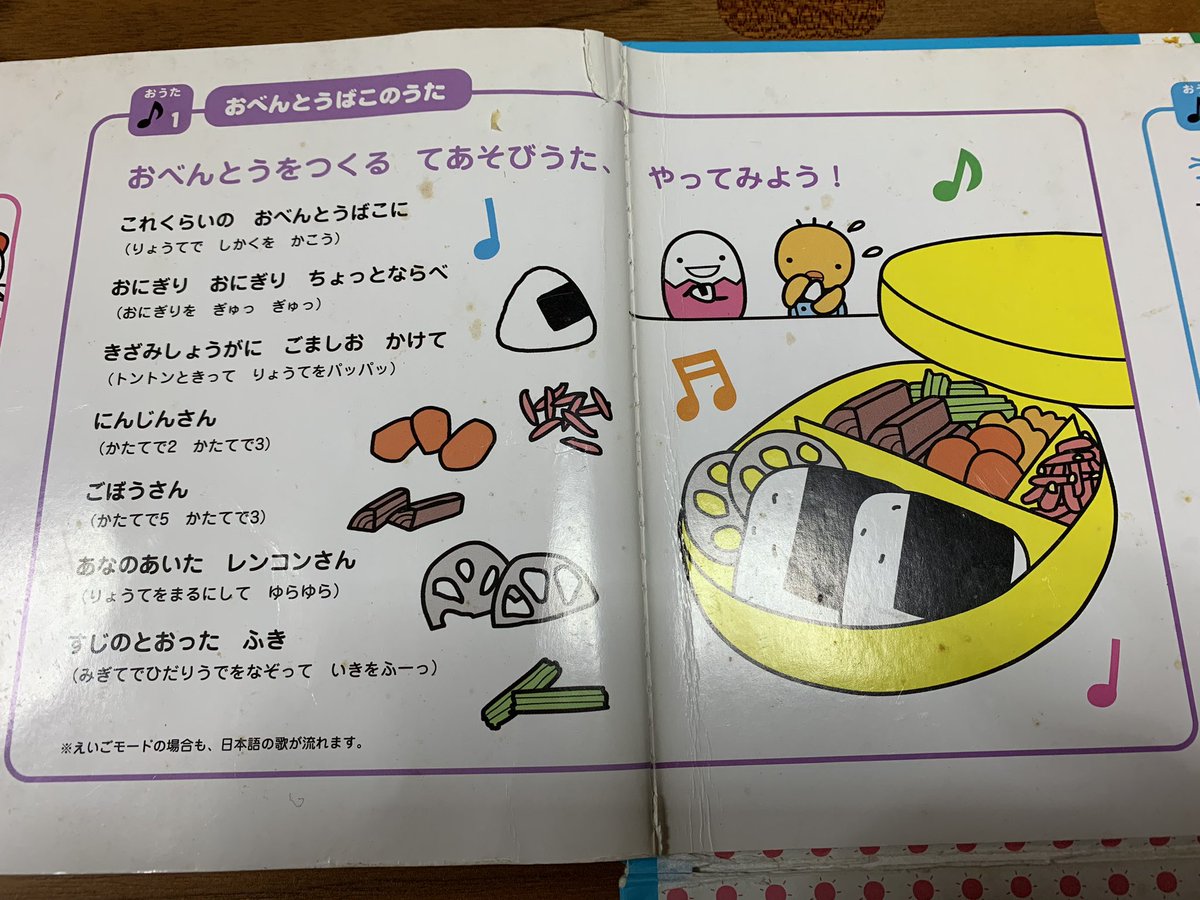 おうた
1
おべんとうばこのうた
おべんとうをつくる　てあそびうた、　やってみよう！
これくらいの　おべんとうばこに
（りょうてで　しかくを　かこう）
おにぎり　おにぎり　ちょっとならべ
（おにぎりを　ぎゅっ　ぎゅっ）
きざみしょうがに　ごましお　かけて
（トントンときって　りょうてをパッパッ）
にんじんさん
（かたてで2　かたてで3）
ごぼうさん
（かたてで5　かたてで3）
あなのあいた　レンコンさん
（りょうてをまるにして　ゆらゆら）
すじのとおった　ふき
（みぎてでひだりうでをなぞって　いきをふーっ）
※えいごモードの場合も、日本語の歌が流れます。